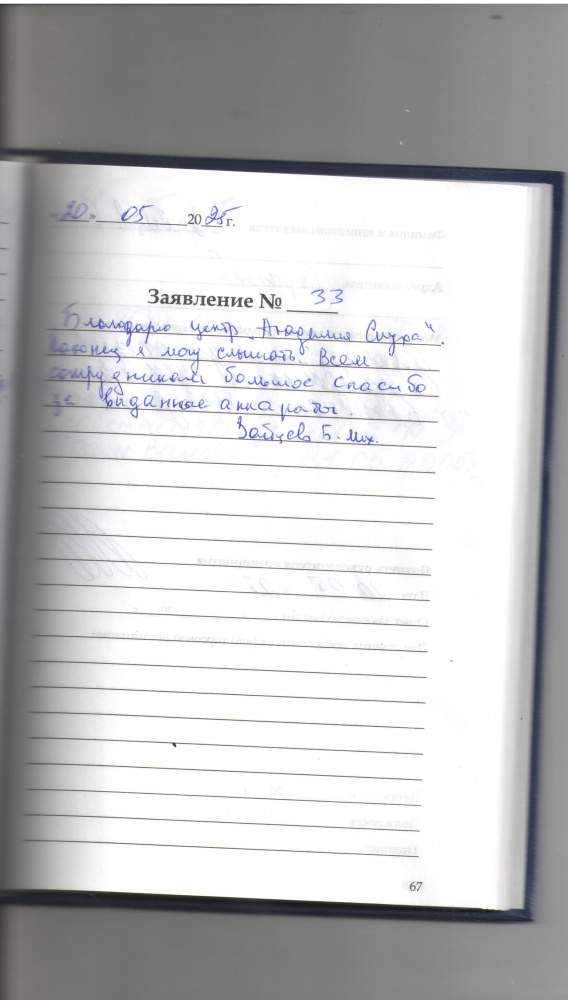 «20» 05 2025 г.
Заявление № 33
Благодарю центр „Академия Слуха".
Наконец я могу слышать. Всем
сотрудникам большое спасибо
за выданные аппараты.
Зайцев Б. Мих.
67